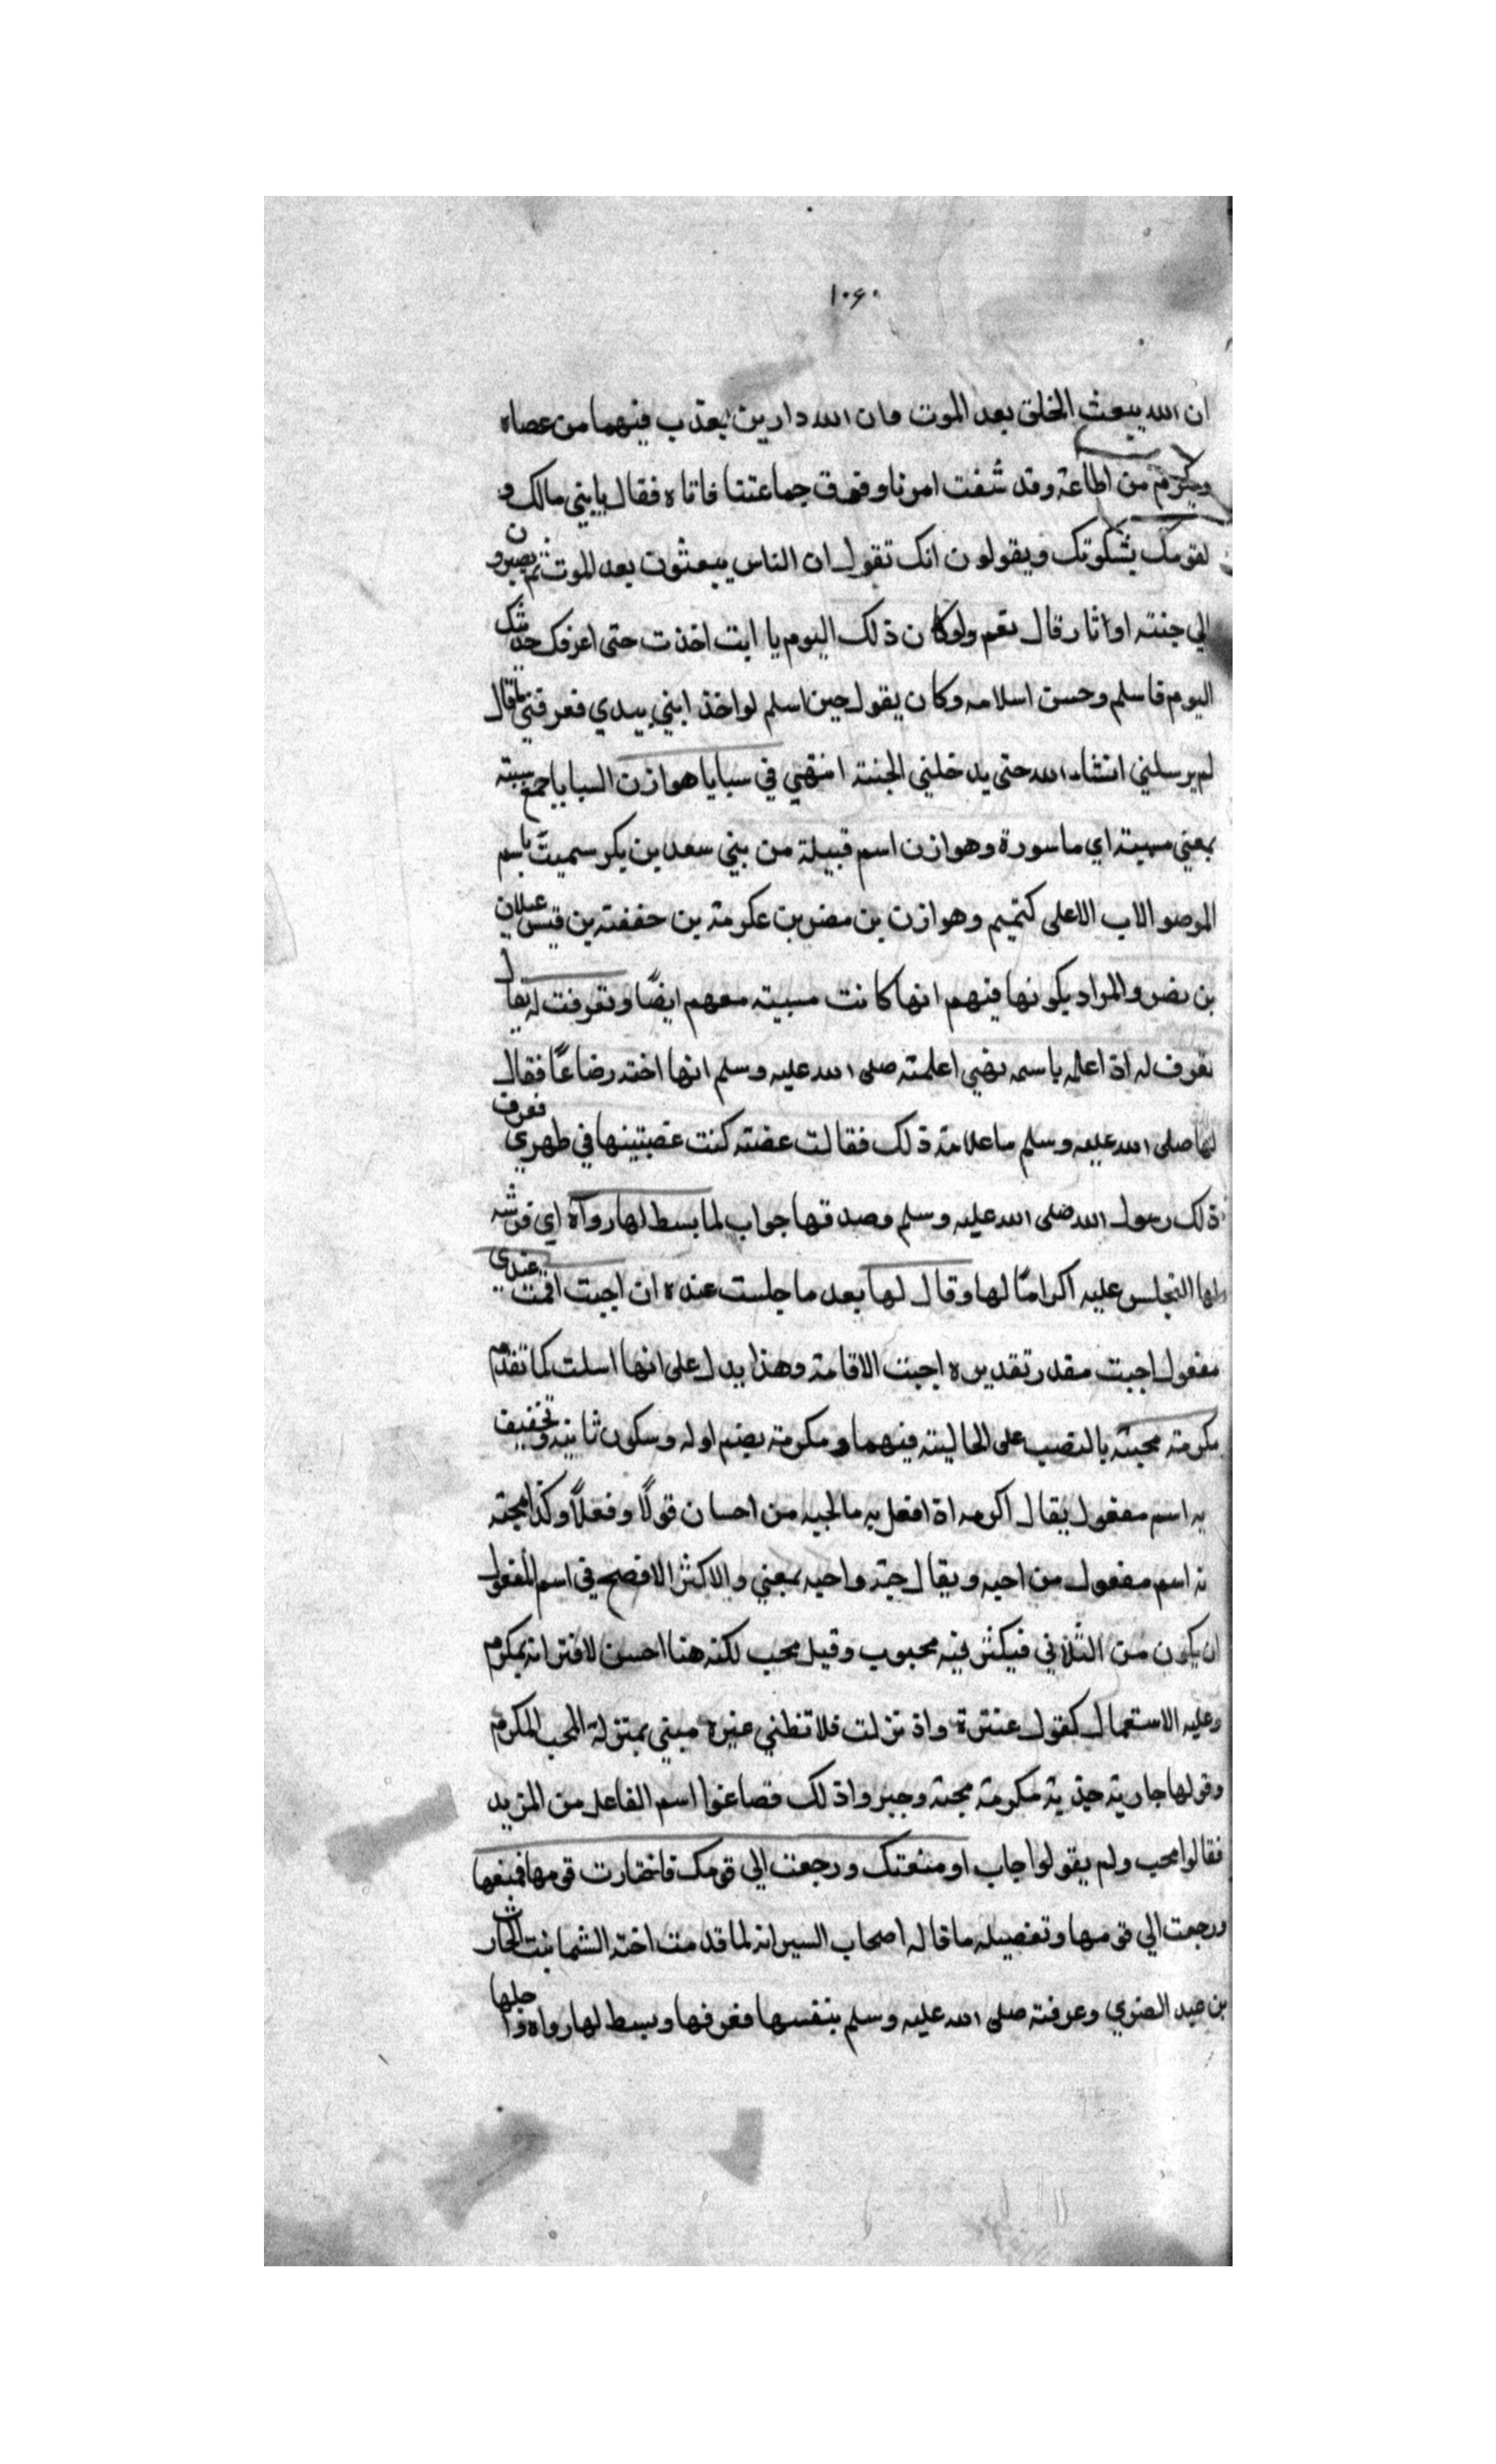 ١٠٦٠
ان الله يبعث الخلق بعد الموت وان لله دارين يعذب فيهما من عصاه
ويكرم من اطاعة وقد شفت امرنا وفرق جماعتنا فاتاه فقال يابني مالك و
لقومك يشكوتك ويقولون انك تقول ان الناس يبعثوت بعد الموت ثم يصيرون
الي جنته او اثار قال نعم ولو كان ذلك اليوم يا ابت اخذت حتى اعرفك حديثك
اليوم فاسلم وحسن اسلامه وكان يقول حين اسلم لو اخذ ابني بيدي فعرفني ماقال
لم يرسلني انشاء الله حتى يدخلني الجنته انتهي في سبايا هوازن السبايا جمع سبيته
بمعني مسبيته اي ماسورة وهوازن اسم قبيلة من بني سعد بن بكر سميت باسم
الاب الاعلى كتميم وهوازن بن مضر بن عكرمة بن حففته بن قيس عيلان
بن نضر والمراد بكونها فيهم انها كانت مسبيته معهم ايضًا وتعرفت له يقال
تعرف له اذ اعلم باسمه نهي اعلمته صلى الله عليه وسلم انها اخته رضاعًا فقال
لها صلى الله عليه وسلم ماعلامة ذلك فقالت عضته كنت عضبتينها في ظهري فعرف
ذلك رسول الله صلى الله عليه وسلم وصدقها جواب لما بسط لها رواه اي فرشه
لها التجلس عليه اكرامًا لها وقال لها بعد ما جلست عنده ان اجبت اقمت عندي
مفعول اجبت مقدر تقديره اجبت الاقامة وهذا يدل على انها اسلت كما تقدم
مكرمته محبته بالنصب على الحاليته فيهما ومكرمته بضم اوله وسكون ثانيه وتخفيف
به اسم مفعول يقال اكرمه اذ افعل به مالحبه من احسان قولًا وفعلًا وكذا محبته
نه اسم مفعول من احبه ويقال حبة واحبه بمعني والاكثر الافصح في اسم المفعول
ان يكون من الثلاثي فيكثر فيه محبوب وقيل محب لكنه هنا احسن لاقترانه بمكرم
وعليه الاستعمال كقول عنترة واذ نزلت فلا تظني غيره مبني بمنزلة المحب المكرم
وقولها جارية حية مكرمة محبة وجبروا ذلك فصاغوا اسم الفاعل من المزيد
فقالوا محب ولم يقولوا جاب او متعتك ورجعت الي قومك فاختارت قومها فمتعها
ورجعت الي قومها وتفصيله ماقاله اصحاب السير انه لما قدمت اخته الشما بنت الحارث
بن عبد العنوي وعرفته صلى الله عليه وسلم بنفسها فعرفها وبسط لها رواه واجلها